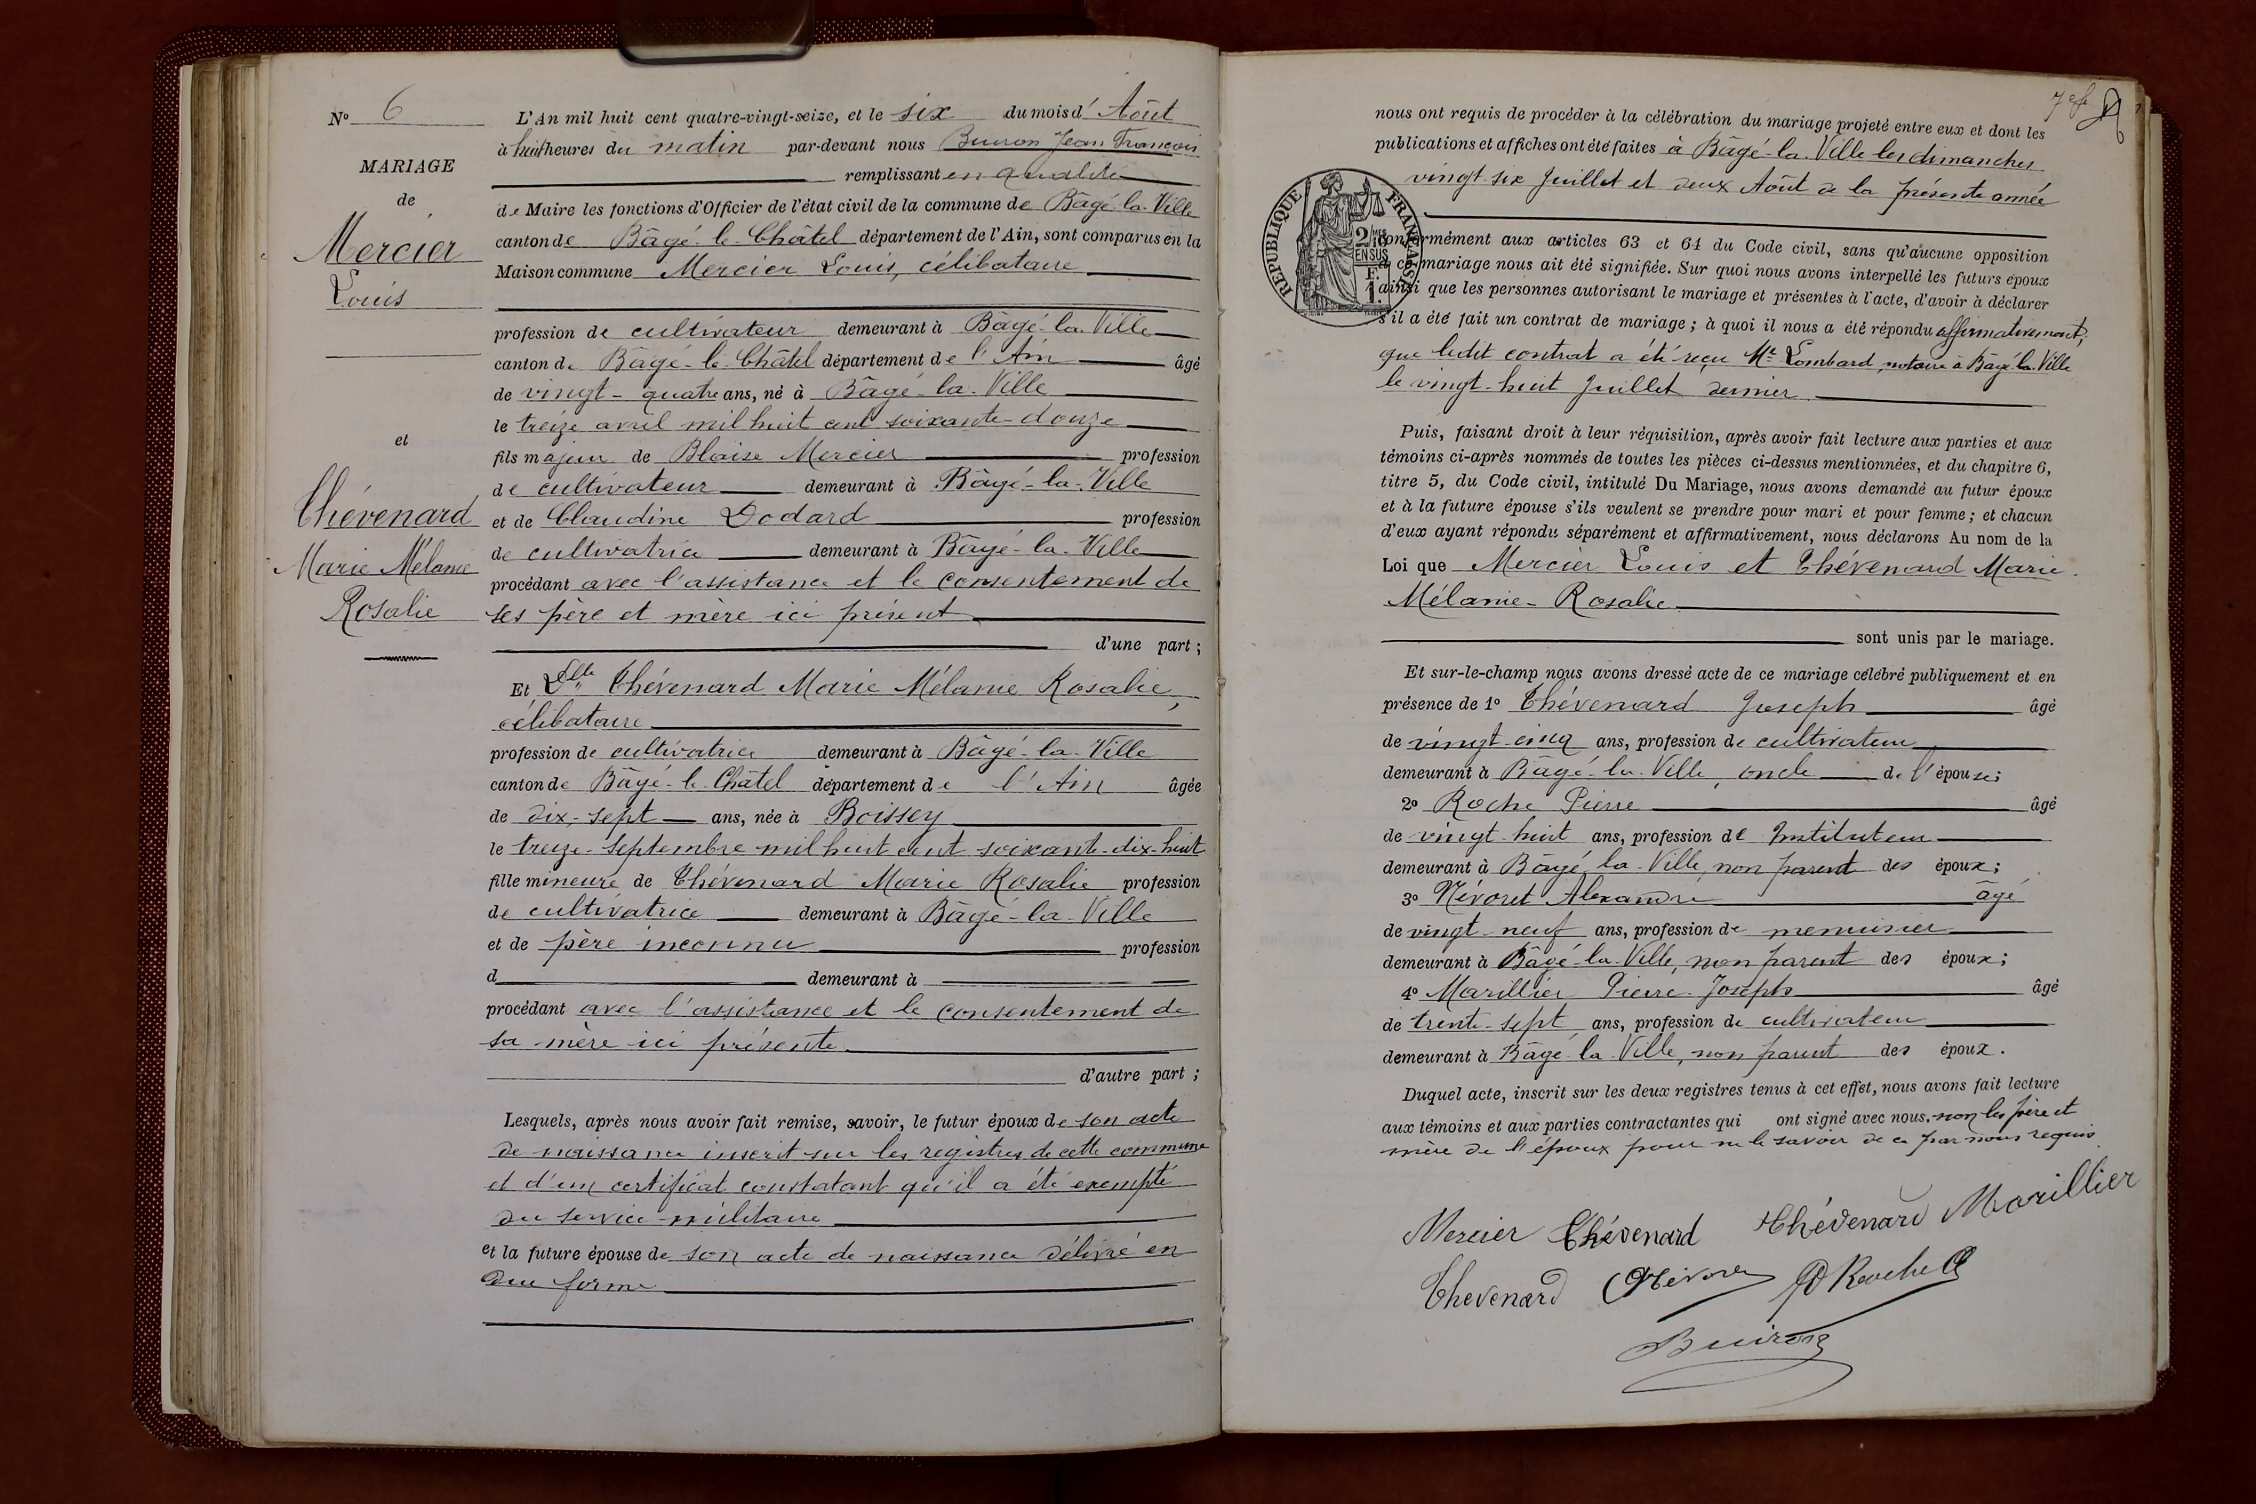 N° 6
MARIAGE
de
Mercier
Louis
et
Chévenard
Marie Mélanie
Rosalie
L'An mil huit cent quatre-vingt-seize, et le six du mois d' Août
à huit heures du matin par-devant nous Buiron Jean François
remplissant en qualité
de Maire les fonctions d'Officier de l'état civil de la commune de Bâgé-la-Ville
canton de Bâgé-le-Châtel département de l'Ain, sont comparus en la
Maison commune Mercier Louis, célibataire
profession de cultivateur demeurant à Bâgé-la-Ville
canton de Bâgé-le-Châtel département de l'Ain âgé
de vingt-quatre ans, né à Bâgé-la-Ville
le treize avril mil huit cent soixante-douze
fils majeur de Blaise Mercier profession
de cultivateur demeurant à Bâgé-la-Ville
et de Claudine Dodard profession
de cultivatrice demeurant à Bâgé-la-Ville
procédant avec l'assistance et le consentement de
ses père et mère ici présent
d'une part ;
Et Dlle Chévenard Marie Mélanie Rosalie,
célibataire
profession de cultivatrice demeurant à Bâgé-la-Ville
canton de Bâgé-le-Châtel département de l'Ain âgée
de dix-sept ans, née à Boissey
le treize Septembre mil huit cent soixante-dix-huit
fille mineure de Chévenard Marie Rosalie profession
de cultivatrice demeurant à Bâgé-la-Ville
et de père inconnu profession
d demeurant à
procédant avec l'assistance et le consentement de
sa mère ici présente
d'autre part ;
Lesquels, après nous avoir fait remise, savoir, le futur époux de son acte
de naissance inscrit sur les registres de cette commune
et d'un certificat constatant qu'il a été exempté
du service militaire
et la future épouse de son acte de naissance délivré en
due forme
nous ont requis de procéder à la célébration du mariage projeté entre eux et dont les
publications et affiches ont été faites à Bâgé-la-Ville les dimanches
vingt-six Juillet et deux Août de la présente année
RÉPUBLIQUE FRANÇAISE
2/10es EN SUS
F.
1.
conformément aux articles 63 et 64 du Code civil, sans qu'aucune opposition
à ce mariage nous ait été signifiée. Sur quoi nous avons interpellé les futurs époux
ainsi que les personnes autorisant le mariage et présentes à l'acte, d'avoir à déclarer
s'il a été fait un contrat de mariage ; à quoi il nous a été répondu affirmativement,
que ledit contrat a été reçu Me Lombard, notaire à Bâgé-la-Ville
le vingt-huit Juillet dernier.
Puis, faisant droit à leur réquisition, après avoir fait lecture aux parties et aux
témoins ci-après nommés de toutes les pièces ci-dessus mentionnées, et du chapitre 6,
titre 5, du Code civil, intitulé Du Mariage, nous avons demandé au futur époux
et à la future épouse s'ils veulent se prendre pour mari et pour femme ; et chacun
d'eux ayant répondu séparément et affirmativement, nous déclarons Au nom de la
Loi que Mercier Louis et Chévenard Marie
Mélanie-Rosalie
sont unis par le mariage.
Et sur-le-champ nous avons dressé acte de ce mariage célébré publiquement et en
présence de 1° Chévenard Joseph âgé
de vingt-cinq ans, profession de cultivateur
demeurant à Bâgé-la-Ville, oncle de l'épouse ;
2° Roche Pierre âgé
de vingt-huit ans, profession de Instituteur
demeurant à Bâgé-la-Ville, non parent des époux ;
3° Névoret Alexandre âgé
de vingt-neuf ans, profession de menuisier
demeurant à Bâgé-la-Ville, non parent des époux ;
4° Marillier Pierre-Joseph âgé
de trente-sept ans, profession de cultivateur
demeurant à Bâgé-la-Ville, non parent des époux.
Duquel acte, inscrit sur les deux registres tenus à cet effet, nous avons fait lecture
aux témoins et aux parties contractantes qui ont signé avec nous, non les père et
mère de l'époux pour ne le savoir de ce par nous requis.
Mercier Chévenard Chévenard Marillier
Chevenard Névoret P Roche
Buiron